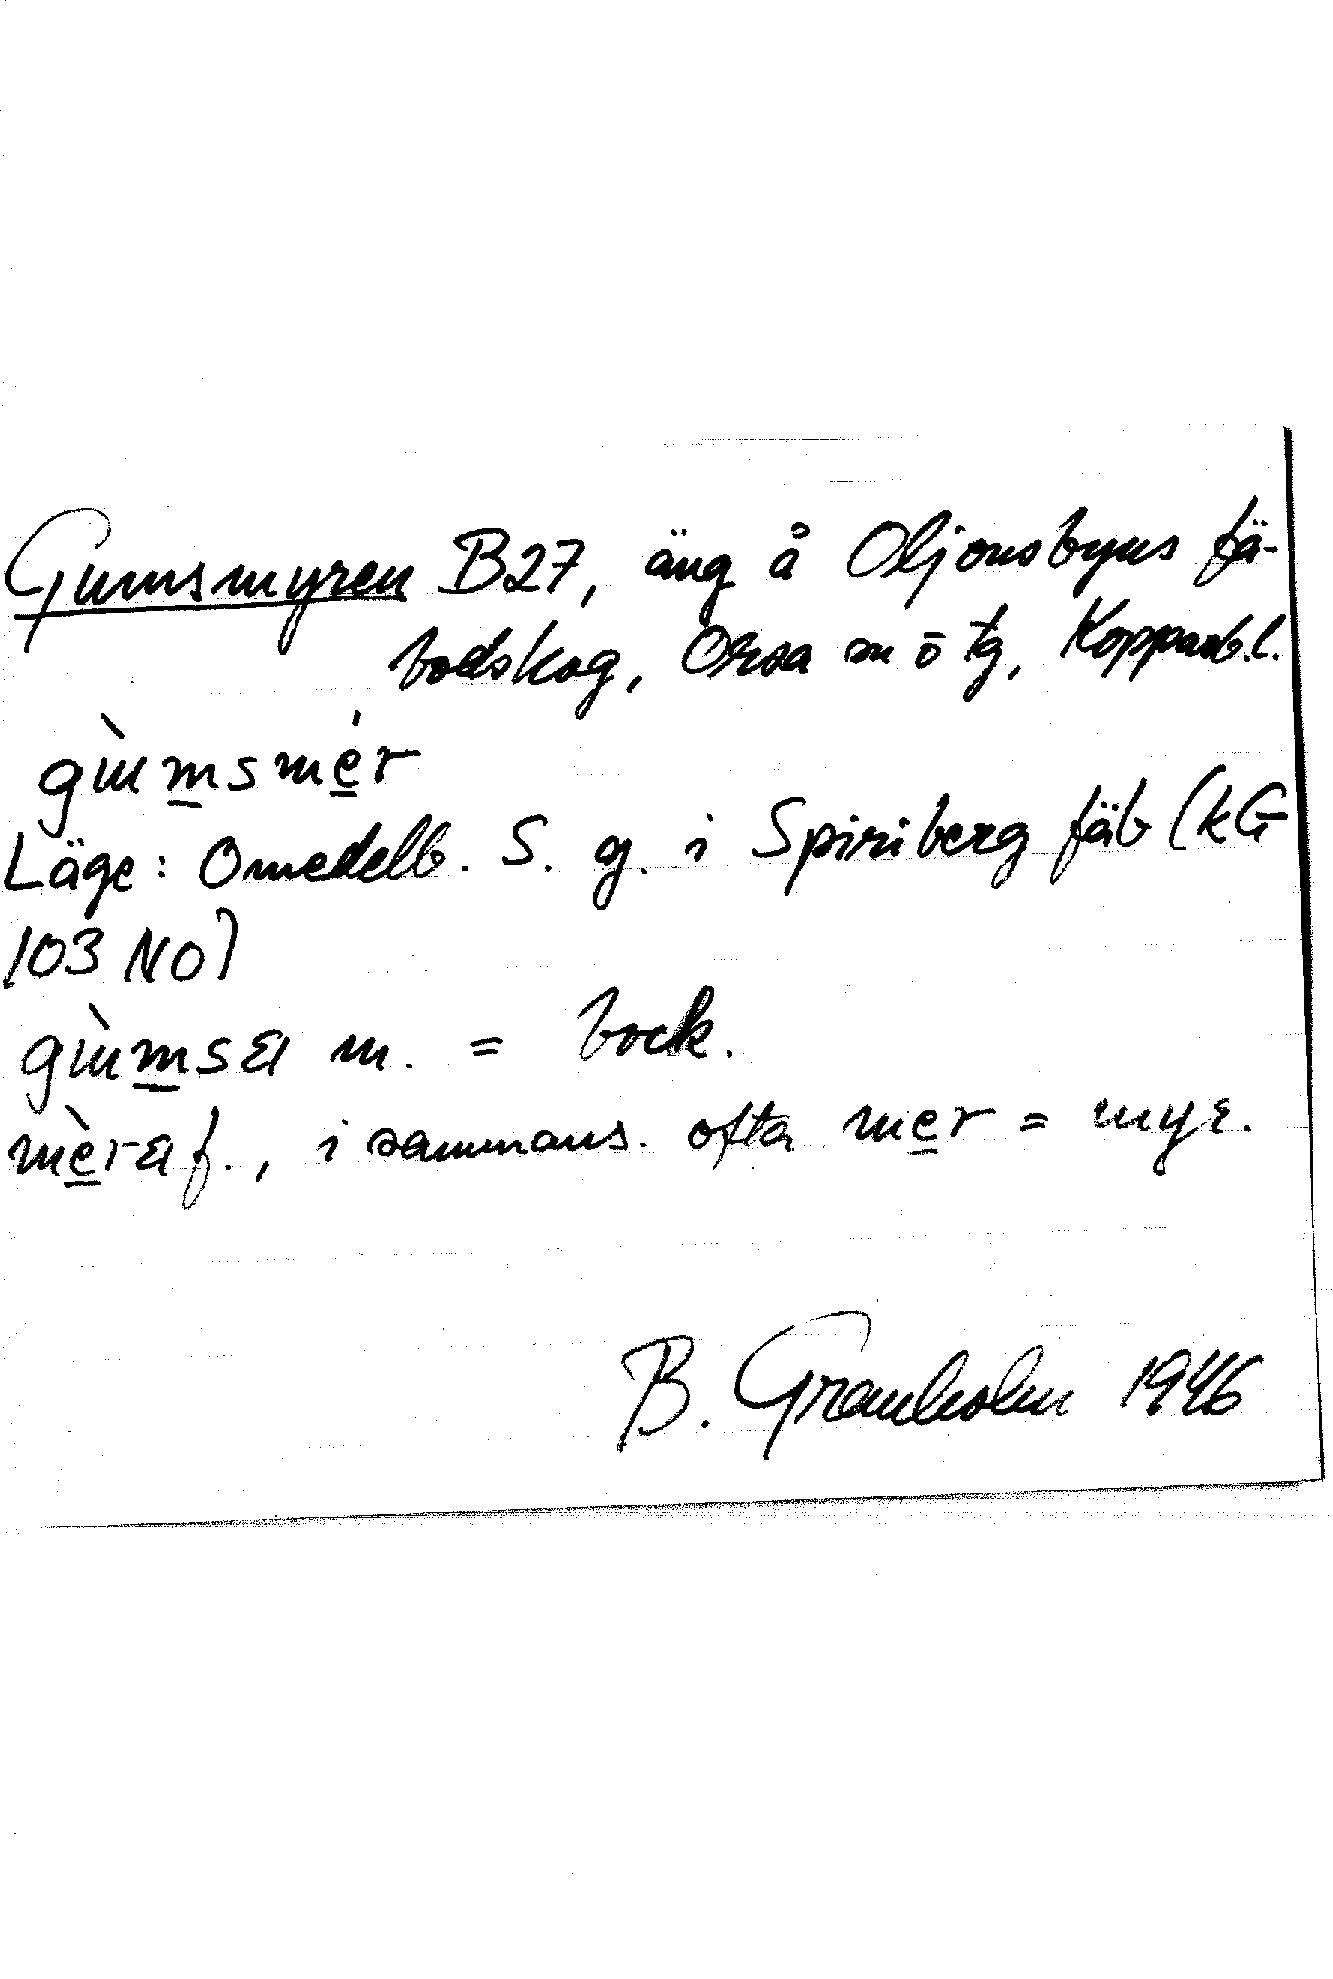 Gumsmyren B27, äng å Oljonsbyns fä-
bodskog, Orsa sn ö tg, Kopparb.l.
gɯ̀m̲smé̲r
Läge: Omedelb. S. g. i Spiriberg fäb (kG
103 NO)
gɯ̀m̲sa m. = bock.
mè̲ra f., i sammans. ofta me̲r = myr.
B. Granholm 1946